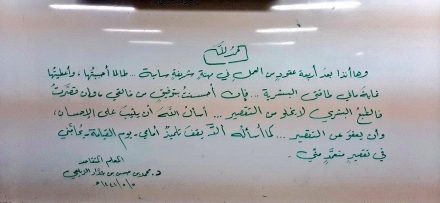 الحمد لله
وهاأنذا بعد أربعة عقودٍ من العمل في مهنةٍ شريفةٍ سامية ... طالما أحببتُها، وأعطيتُها
غاية مافي طاقتي البشرية ... فإن أحسنتُ بتوفيقٍ من خالقي، وإن قصَّرتُ
فالطبع البشري لا يخلو من التقصير ... أسأل الله أن يثيبَ على الإحسان،
وأن يعفوَ عن التقصير ... كما أسأله ألَّا يقفَ تلميذٌ أمامي يوم القيامة يحاجّني
في تقصيرٍ متعمَّدٍ منّي.
المعلم المتقاعد
د. محمد بن حسن بن